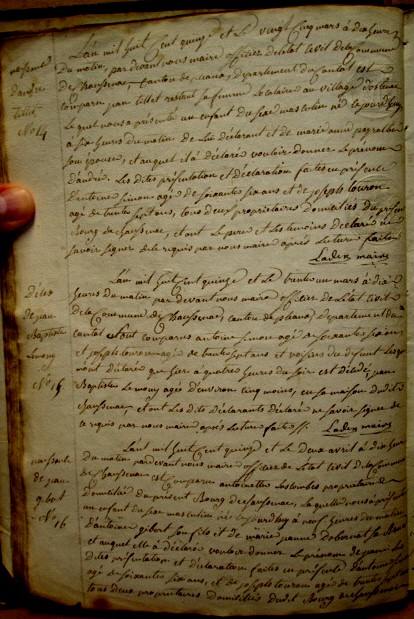 naissance
d'andré
tillet
No 14
L'an mil huit cent quinze et le vingt cinq mars à dix heures
du matin, par devant nous maire officier de l'état civil de la commune
de chaussenac, canton de pleaux, département du cantal est
comparu jean tillet
lequel nous a présenté un enfant du sexe masculin né le jour d'hier
à six heures du matin de lui déclarant et de marie
son épouse, et auquel il a déclaré vouloir donner le prénom
d'andré. Les dites présentation et déclaration faites en présence
d'antoine simon agé de soixante six ans et de joseph touron
agé de trente sept ans, tous deux propriétaires domiciliés du présent
Bourg de chaussenac, et ont le père et les témoins déclaré ne
savoir signer de ce requis par nous maire après lecture faite
Laden maire
Décès
de jean
Baptiste
Lemony
et No 15
L'an mil huit cent quinze et le trente un mars à dix
heures du matin par devant nous maire officier de l'état civil
de la commune de chaussenac, canton de pleaux, département du
cantal sont comparus antoine simon agé de soixante six ans
et joseph touron agé de trente sept ans et voisins du défunt lesquels
mont déclaré que hier à quatre heures du soir est décédé jean
Baptiste Lemony agé d'environ cinq mois, en sa maison dudit
chaussenac et ont les dits déclarants déclaré ne savoir signer de
ce requis par nous maire, après lecture faite
Laden maire
naissance
de jean
gibert
No 16
L'an mil huit cent quinze et le deux avril à dix heures
du matin pardevant nous maire officier de l'état civil de la commune
de chaussenac est comparu antoinette propriétaire
domiciliée du présent Bourg de chaussenac, laquelle nous a présenté
un enfant du sexe masculin né aujourd'huy à neuf heures du matin
d'antoine gibert son fils et de marie jeanne
et auquel elle a déclaré vouloir donner le prénom de jean. Les
dites présentation et déclaration faites en présence d'antoine simon
agé de soixante six ans, et de joseph touron agé de trente sept ans
tous deux propriétaires domiciliés dudit Bourg de chaussenac